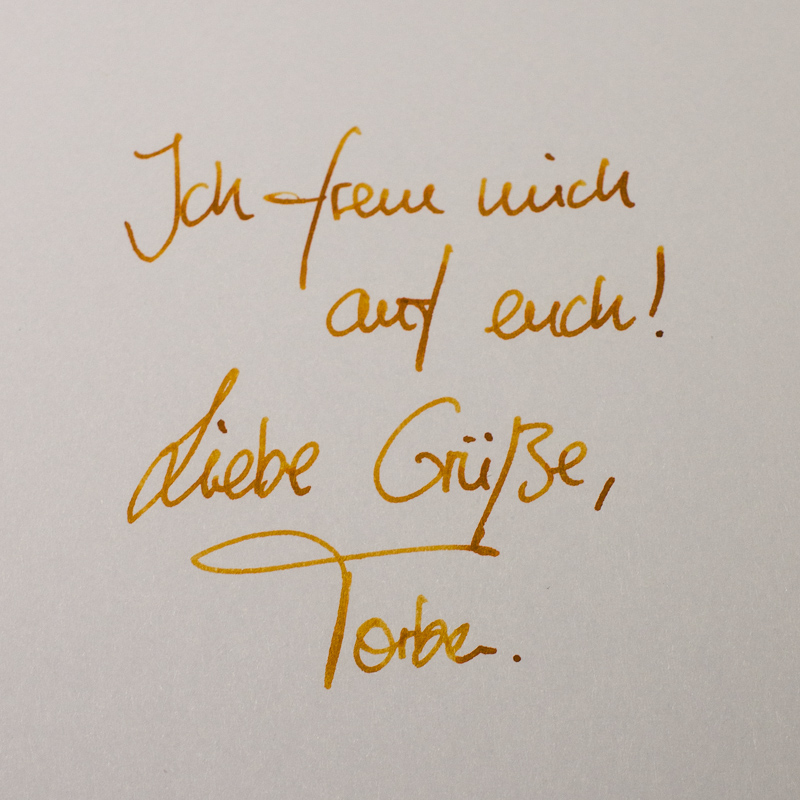 Ich freue mich
auf euch!
Liebe Grüße,
Torben.